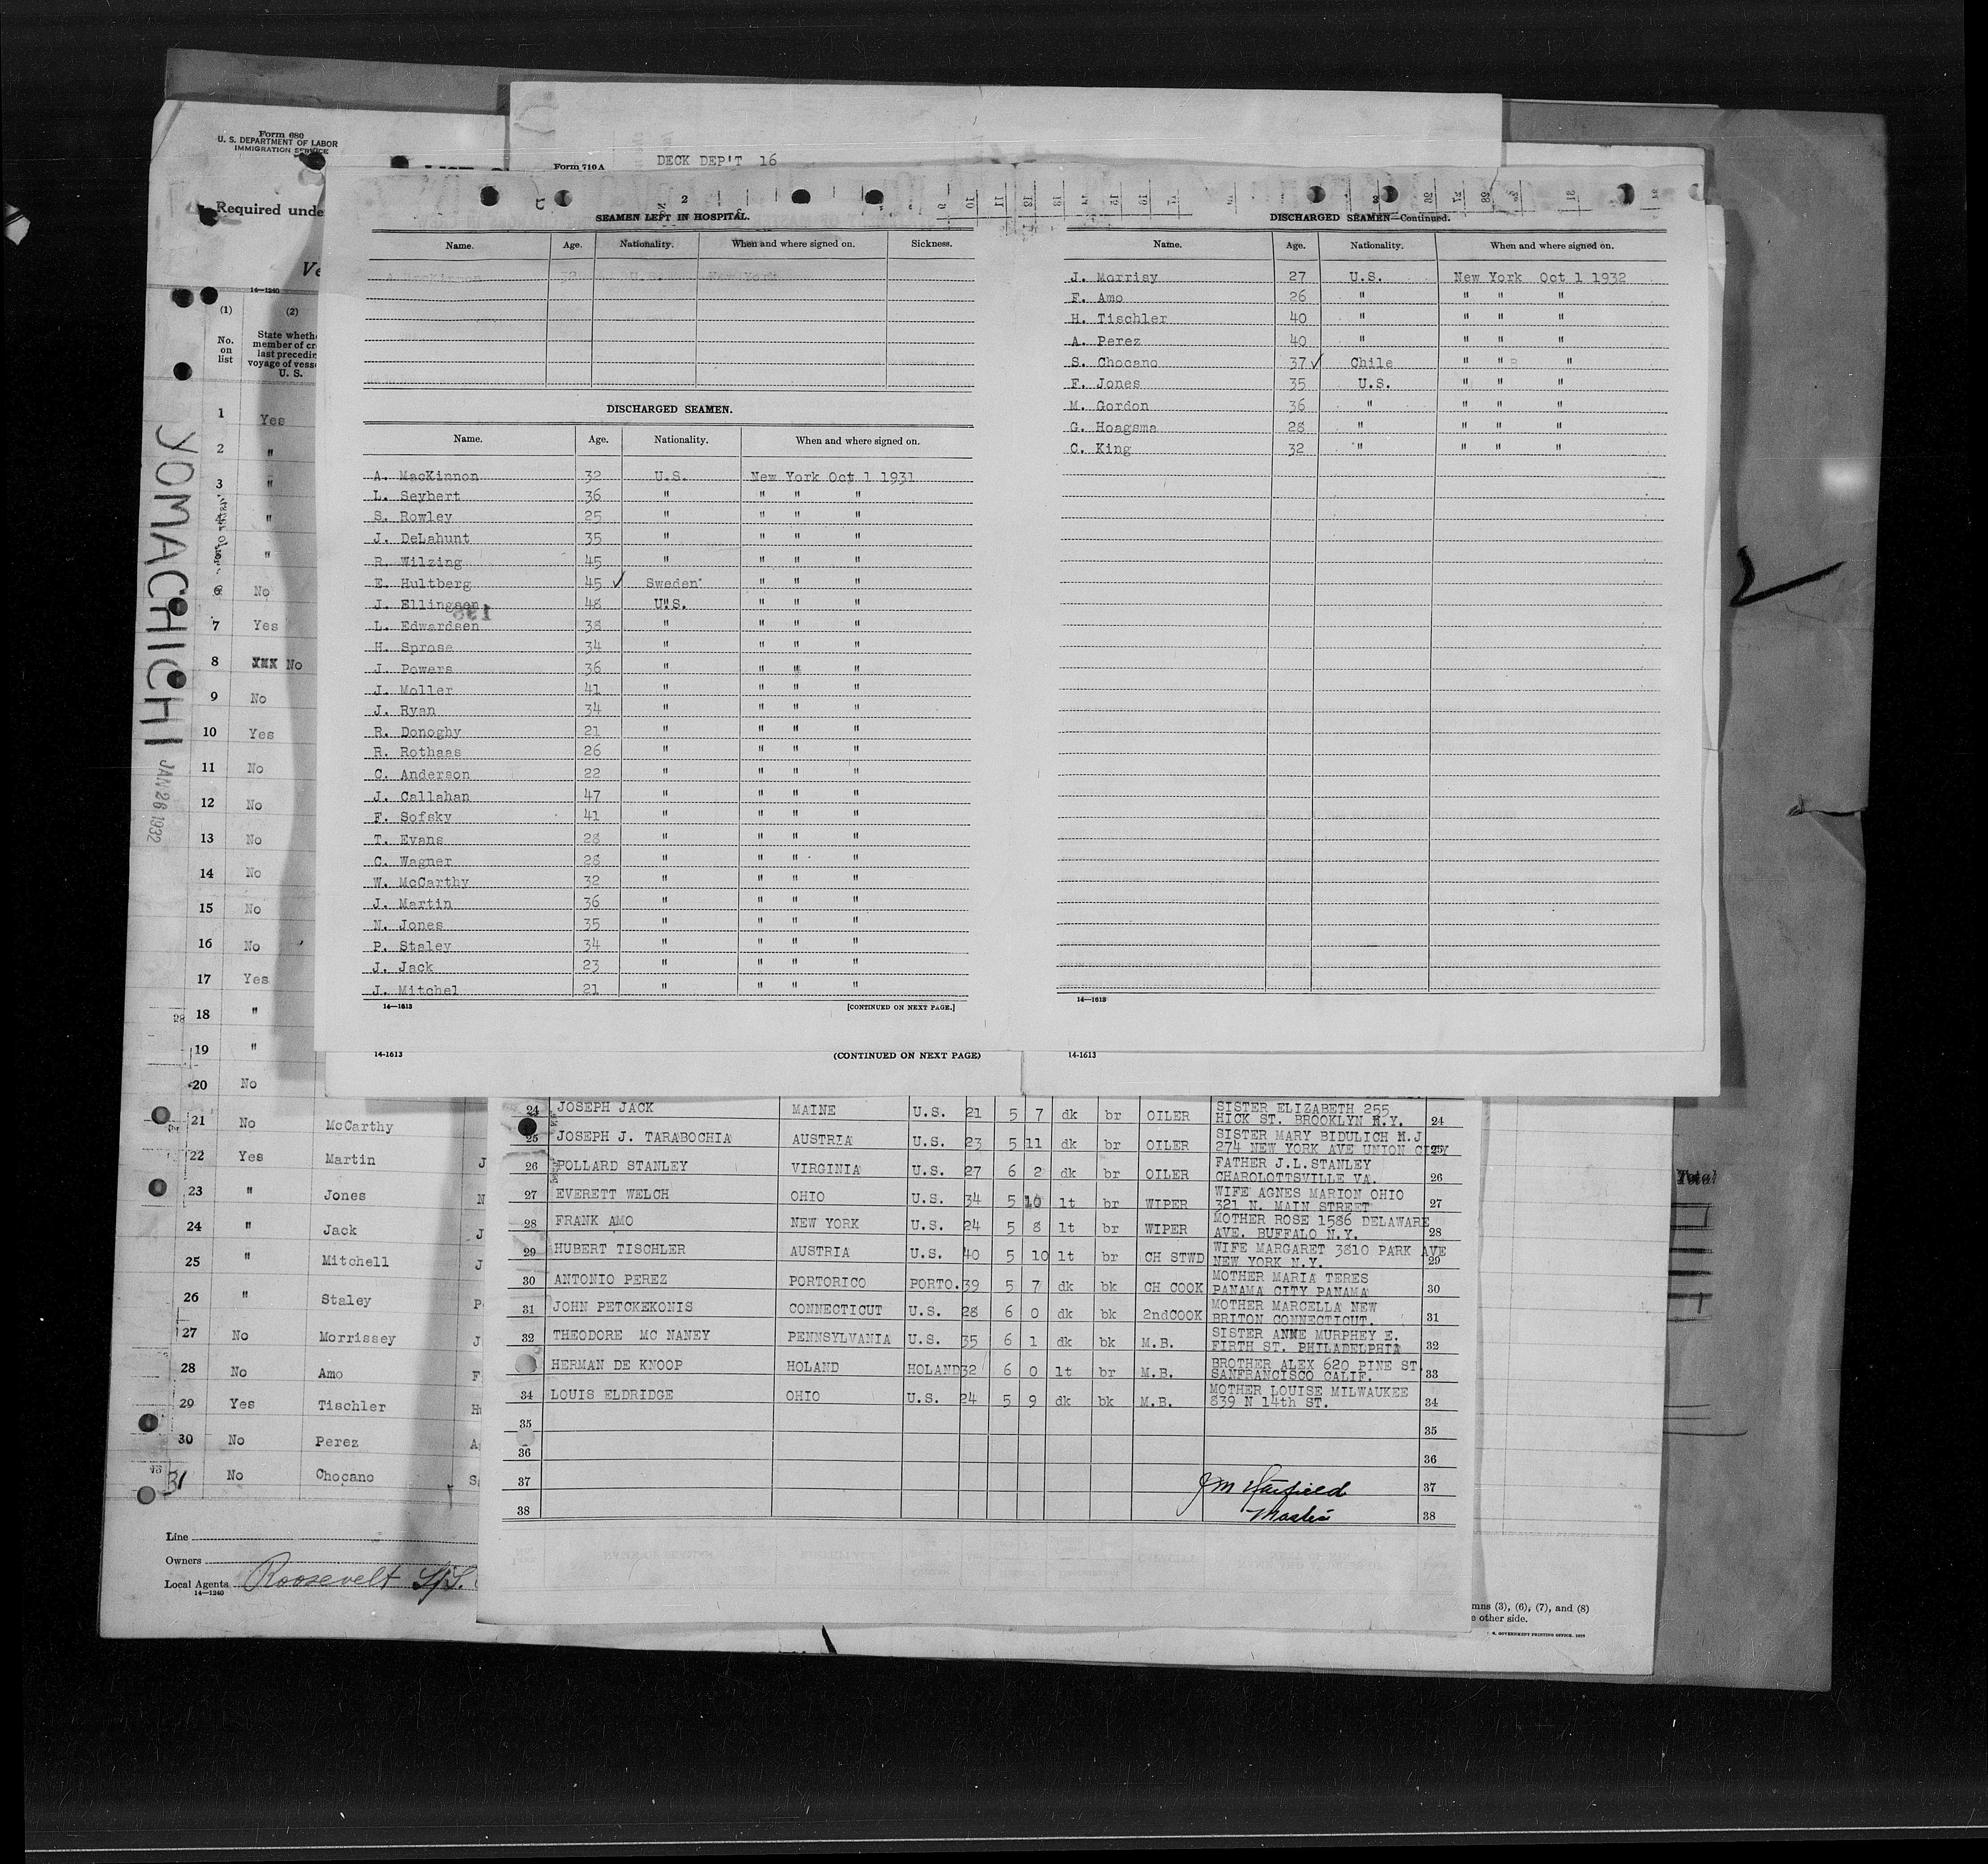 Form 680
U. S. DEPARTMENT OF LABOR
IMMIGRATION SERVICE
Required unde
Ve
14—1240
(1) (2)
No. on list
State whethe
member of cr
last precedin
voyage of vesse
U. S.
1 Yes
2 "
3 "
"
"
6 No
7 Yes
8 XXX No
9 No
10 Yes
11 No
12 No
13 No
14 No
15 No
16 No
17 Yes
18 "
19 "
20 No
21 No McCarthy
22 Yes Martin J
23 " Jones N
24 " Jack J
25 " Mitchell J
26 " Staley P
27 No Morrissey J
28 No Amo F
29 Yes Tischler H
30 No Perez A
31 No Chocano S
Line
Owners
Local Agents Roosevelt S/S.
14—1240
YOMACHICHI
JAN 26 1932
Form 710A
DECK DEP'T 16
2
SEAMEN LEFT IN HOSPITAL.
Name. Age. Nationality. When and where signed on. Sickness.
A MacKinnon 32 U.S. New York
DISCHARGED SEAMEN.
Name. Age. Nationality. When and where signed on.
A. MacKinnon 32 U.S. New York Oct 1 1931
L. Seybert 36 " " " "
S. Rowley 25 " " " "
J. DeLahunt 35 " " " "
R. Wilzing 45 " " " "
E. Hultberg 45 ✓ Sweden " " "
J. Ellingsen 48 U.S. " " "
L. Edwardsen 38 " " " "
H. Sprose 34 " " " "
J. Powers 36 " " " "
J. Moller 41 " " " "
J. Ryan 34 " " " "
R. Donoghy 21 " " " "
R. Rothaas 26 " " " "
C. Anderson 22 " " " "
J. Callahan 47 " " " "
F. Sofsky 41 " " " "
T. Evans 28 " " " "
C. Wagner 28 " " " "
W. McCarthy 32 " " " "
J. Martin 36 " " " "
N. Jones 35 " " " "
P. Staley 34 " " " "
J. Jack 23 " " " "
J. Mitchel 21 " " " "
14—1613 [CONTINUED ON NEXT PAGE.]
3
DISCHARGED SEAMEN—Continued.
Name. Age. Nationality. When and where signed on.
J. Morrisy 27 U.S. New York Oct 1 1932
F. Amo 26 " " " "
H. Tischler 40 " " " "
A. Perez 40 " " " "
S. Chocano 37 ✓ Chile " " "
F. Jones 35 U.S. " " "
M. Gordon 36 " " " "
G. Hoagsma 28 " " " "
C. King 32 " " " "
14—1613
14-1613 (CONTINUED ON NEXT PAGE) 14-1613
24 JOSEPH JACK MAINE U.S. 21 5 7 dk br OILER SISTER ELIZABETH 255 HICK ST. BROOKLYN N.Y. 24
25 JOSEPH J. TARABOCHIA AUSTRIA U.S. 23 5 11 dk br OILER SISTER MARY BIDULICH N.J 274 NEW YORK AVE UNION CITY 25
26 POLLARD STANLEY VIRGINIA U.S. 27 6 2 dk br OILER FATHER J.L.STANLEY CHAROLOTTSVILLE VA. 26
27 EVERETT WELCH OHIO U.S. 34 5 10 lt br WIPER WIFE AGNES MARION OHIO 321 N. MAIN STREET 27
28 FRANK AMO NEW YORK U.S. 24 5 8 lt br WIPER MOTHER ROSE 1586 DELAWARE AVE. BUFFALO N.Y. 28
29 HUBERT TISCHLER AUSTRIA U.S. 40 5 10 lt br CH STWD WIFE MARGARET 3810 PARK AVE NEW YORK N.Y. 29
30 ANTONIO PEREZ PORTORICO PORTO. 39 5 7 dk bk CH COOK MOTHER MARIA TERES PANAMA CITY PANAMA 30
31 JOHN PETCKEKONIS CONNECTICUT U.S. 28 6 0 dk bk 2ndCOOK MOTHER MARCELLA NEW BRITON CONNECTICUT. 31
32 THEODORE MC NANEY PENNSYLVANIA U.S. 35 6 1 dk bk M.B. SISTER ANNE MURPHEY E. FIRTH ST. PHILADELPHIA 32
HERMAN DE KNOOP HOLAND HOLAND 32 6 0 lt br M.B. BROTHER ALEX 620 PINE ST. SANFRANCISCO CALIF. 33
34 LOUIS ELDRIDGE OHIO U.S. 24 5 9 dk bk M.B. MOTHER LOUISE MILWAUKEE 839 N 14th ST. 34
35 35
36 36
37 37
38 Master 38
Total
mns (3), (6), (7), and (8)
e other side.
GOVERNMENT PRINTING OFFICE